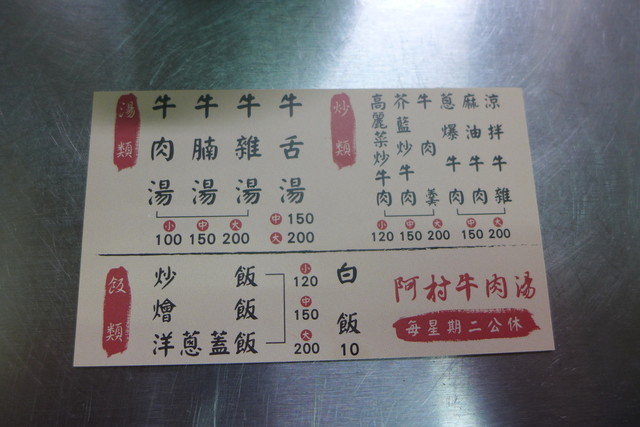 湯類
牛肉湯
牛腩湯
牛雜湯
牛舌湯
小 中 大
100 150 200
中 150
大 200
炒類
高麗菜炒牛肉
芥藍炒牛肉
牛肉羹
蔥爆牛肉
麻油牛肉
涼拌牛雜
小 中 大 中 大
120 150 200 150 200
飯類
炒飯
燴飯
洋蔥蓋飯
小
120
中
150
大
200
白飯
10
阿村牛肉湯
每星期二公休